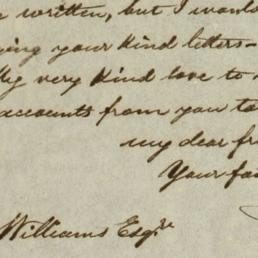 written, but I would
ing your kind letters–
My very kind love to
accounts from you to
my dear fr
Your fai
Williams Esqre